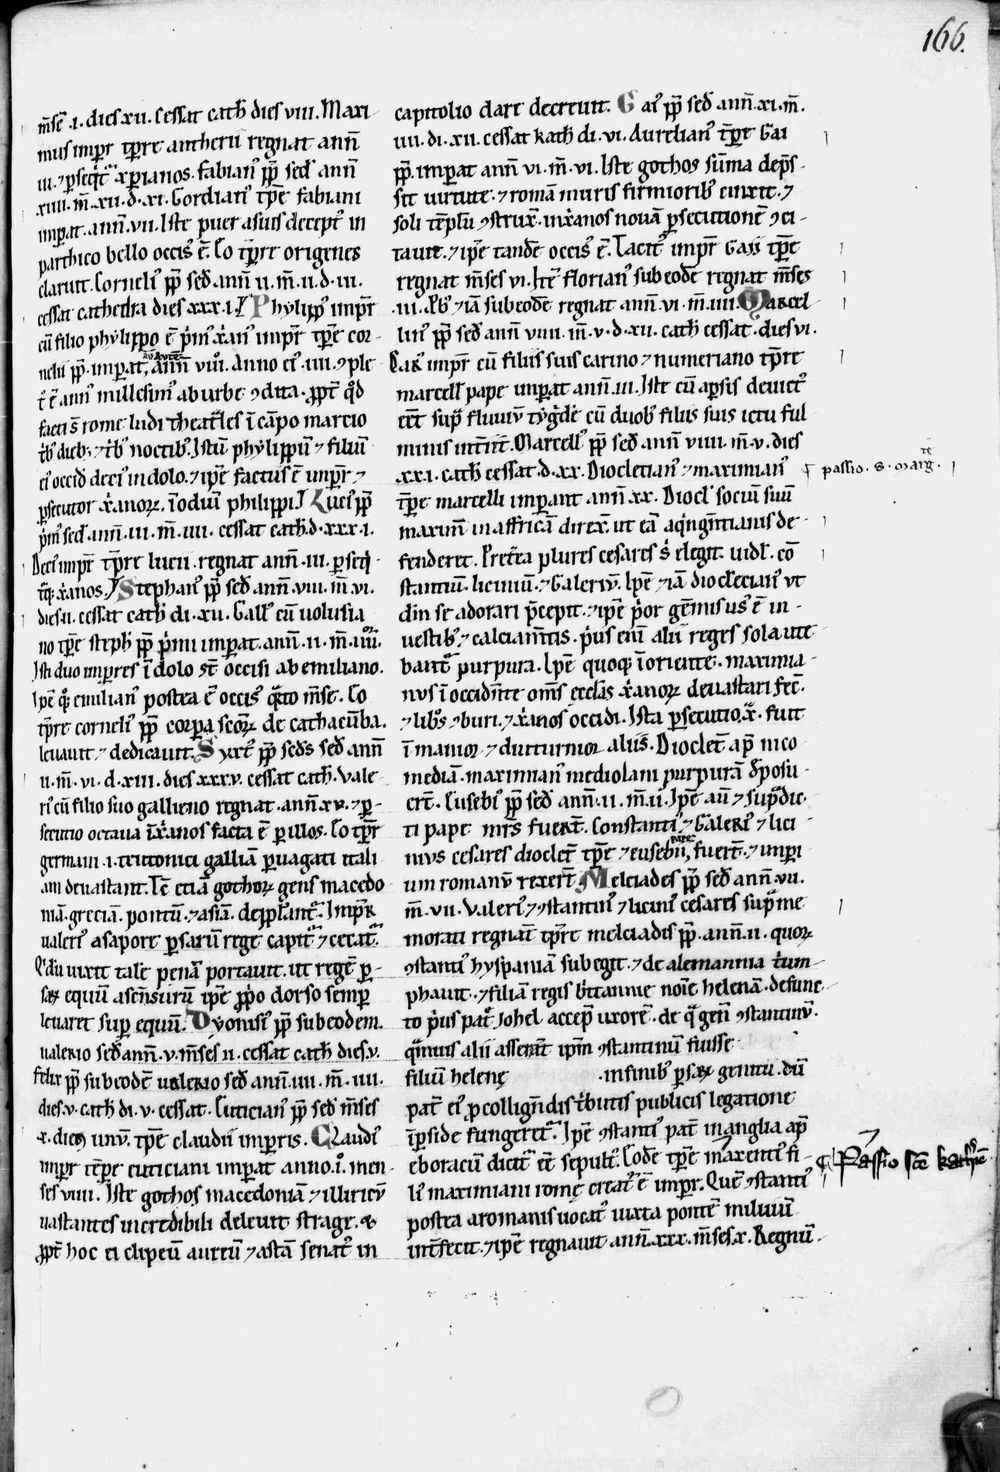 166.
m̄se .i. dies xii. cessat cath̄ dies viii. Maxi
mus imꝑr tꝑre antherii regnat ann̄
iii. ⁊ ꝑseqͥt̃ xp̄ianos. fabianꝰ pp̄ sed̄ ann̄
xiiii. m̄. xii. d. xi. Gordianꝰ tp̄e fabiani
imꝑat. ann̄. vii. Iste puer a suis deceptꝰ in
parthico bello occisꝰ ē. Eo tꝑre origenes
claruit. Corneliꝰ pp̄ sed̄ ann̄ ii. m̄. ii. d. iii.
cessat cathedra dies xxx. i. Phylippꝰ imꝑr̄
cū filio phylippo ē p̄mꝰ xānꝰ imꝑr̄ tp̄e cor
nelii pp̄. imꝑat, ann̄ vii. Anno eiꝰ. iiii. ⁊ple
t̄ ē annꝰ millesimꝰ ab urbe ꝯdita. ꝓpt̄ qd̄
facti s̄ rome ludi theat̄les ī cāpo marcio
t̄bꝰ dieb; ⁊ t̄bꝰ noctibꝰ. Istū phylippū ⁊ filiū
eiꝰ occid̄ deciꝰ in dolo. ⁊ ip̄e factus ē imꝑr̄ ⁊
ꝑsecutor xānoꝝ. ī odiū philippi. Luciꝰ pp̄
p̄mꝰ sed̄. ann̄. iii. m̄. iiii. cessat cath̄. d. xxx. i.
Deciꝰ imꝑr̄ tꝑre lucii. regnat ann̄. iii. ꝑseq̄
xānos. Stephanꝰ pp̄ sed̄ ann̄. viii. m̄. vi.
dies ii. cessat cath̄ di. xii. Gallꝰ cū uolusia
no tp̄e steph̄ pp̄ p̄mi imꝑat. ann̄. ii. m̄. iiii.
Isti duo imꝑres ī dolo st̄ occisi ab emiliano.
Ip̄e q̄ emilianꝰ postea ē occisꝰ q̄to m̄se. Eo
tꝑre corneliꝰ pp̄ corpa sc̄oꝝ de cathacūba.
leuauit ⁊ dedicauit. Syxtꝰ pp̄ sed̄s sed̄ ann̄
ii. m̄. vi. d. xiii. dies xxxv. cessat cath̄. Vale
riꝰ cū filio suo gallieno regnat. ann̄ xv. ⁊ ꝑ
secutio octaua ī xānos facta ē ꝑ illos. Eo tꝑr̄
germani .i. teutonici galliā ꝑuagati itali
am deuastant. Tē etiā gothoꝝ gens macedo
niā. greciā. pontū. ⁊ asiā. depp̄lant̃. Imꝑr̄
ualeriꝰ a sapore ꝑsarū rege capit̃ ⁊ cecat̃.
Qͥ diu uixit talē penā portauit. ut regē ꝑ
saꝝ equū ascēnsurū ip̄e ꝓpo dorso semꝑ
leuaret suꝑ equū. Dyonisiꝰ pp̄ sub eodem
ualerio sed̄ ann̄. v. m̄ses ii. cessat cath̄ dies. v.
felix pp̄ sub eodē ualerio sed̄ ann̄. iiii. m̄. iiii.
dies. v. cath̄ di. v. cessat. Euticianꝰ pp̄ sed̄ m̄ses
x. dieꝫ unū. tp̄e claudii imꝑris. Claudiꝰ
imꝑr tꝑre euticiani imꝑat anno. i. men
ses viiii. Iste gothos macedoniā ⁊ illiricū
uastantes incredibili deleuit strage. &
ꝓpt̄ hoc ei clipeū aureū ⁊ astā senatꝰ in
capitolio dare decreuit. Gaiꝰ pp̄ sed̄ ann̄. xi. m̄.
iiii. di. xii. cessat kath̄ di. vi. Aurelianꝰ tꝑre Gai
pp̄. imꝑat ann̄ vi. m̄. vi. Iste gothos sūma dep̄s
sit uirtute. ⁊ romā muris firmioribꝰ cinxit. ⁊
soli tēplū ꝯstrux̄. in xānos nouā ꝑsecutionē ꝯci
tauit. ⁊ ip̄e tandē occisꝰ ē. Tacitꝰ imꝑr̄ Gaii tp̄e
regnat m̄ses vi. Itē florianꝰ sub eodē regnat m̄ses
.iii. Pbꝰ ⁊ iā sub eodē regnat ann̄ vi. m̄. iiii. Marcel
linꝰ pp̄ sed̄ ann̄ viiii. m̄. v. d. xii. cath̄ cessat. dies vi.
Carꝰ imꝑr̄ cū filiis suis carino ⁊ numeriano tꝑre
marcelli pape imꝑat ann̄. iii. Iste cū aꝑsis deuictꝰ
eēt suꝑ fluuiū tyg̃dē cū duobꝰ filiis suis ictu ful
minis int̄iit. Marcellꝰ pp̄ sed̄ ann̄ viiii. m̄. v. dies
.xxi. cath̄ cessat. d. xx. Dioclecianꝰ ⁊ maximianꝰ
tꝑre marcelli imꝑant ann̄. xx. Diocl̄ sociū suū
maximū in affricā direx̄ ut eā a qͥngn̄tianis de
fenderet. Pret̄ea plures cesares s̄ elegit. uidl̄. cō
stantiū. liciniū. ⁊ Galeriū. Ip̄e ⁊ iā dioclecianꝰ ut
dm̄ se adorari p̄cepit. ⁊ ip̄e p̄or gēmis usꝰ ē in
uestibꝰ ⁊ calciam̄tis. p̄us enī alii reges sola ute
bant̃ purpura. Ip̄e quoqꝫ ī oriente. maximia
nus ī occidn̄te om̄s ecclās xānoꝝ deuastari fec̄.
⁊ libꝰs ꝯburi. ⁊ xānos occidi. Ista ꝑsecutio. x̄. fuit
ī manior ⁊ diuturnior aliis. Dioclet̄ ap̄ nico
mediā. maximianꝰ mediolani purpurā d̄posu
ert̄. Eusebiꝰ pp̄ sed̄ ann̄. ii. m̄. ii. Ip̄e aū ⁊ suꝑdic
ti pape mr̄s fuert̄. Constantiꝰ ⁊ Galeriꝰ ⁊ lici
nius cesares dioclet̄ tp̄e ⁊ eusebii, fuert̄. ⁊ imꝑi
um romanū rexert̄. Melciades pp̄ sed̄ ann̄. vii.
m̄. vii. Valeriꝰ ⁊ ꝯstantinꝰ ⁊ liciniꝰ cesares suꝑme
morati regnat̄ tꝑre melciadis pp̄. ann̄. ii. quoꝝ
ꝯstantiꝰ hyspaniā subegit. ⁊ de alemannia t̄um
phauit. ⁊ filiam regis b̄ttannie noīe helenā. defunc
to p̄us pat̄ Iohel accep̄ uxorē. de q̄ gen̄ ꝯstantinū.
q̄muis alii asserāt ip̄m ꝯstantinū fuisse
filiū helenę .in finibꝰ ꝑsaꝝ genitū. dū
pat̄ eiꝰ ꝓ colligēndis t̄butis publicis legatione
īpside fungeret̃. Ip̄e ꝯstantiꝰ pat̄ in anglia ap̄
eboracū dicit̃ eē sepult̃. Eodē tp̄e maxentiꝰ fi
liꝰ maximiani romę creatꝰ ē imꝑr. Quē ꝯstantiꝰ
postea a romanis uocatꝰ iuxta pontē miluiū
int̄fecit. ⁊ ip̄e regnauit ann̄. xxx. m̄ses. x. Regnū
passio. S. marg.
Passio sc̄e kath̄ine